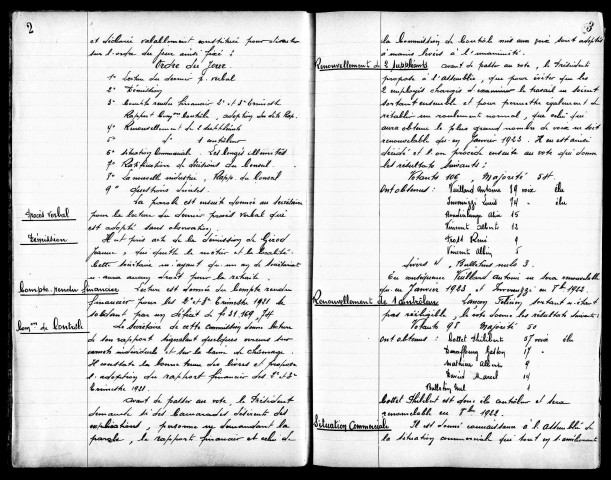 2
et déclare valablement constituée pour discuter
sur l'ordre du jour ainsi fixé :
Ordre du Jour
1° Lecture du dernier p. verbal
2° Démission
3° Compte rendu financier 2e et 3e Trimestre
Rapport Comm Contrôle, adoption des dits Rap.
4° Renouvellement de 2 suppléants
5° d° 1 contrôleur
6° Situation Commerciale, Les Congés
7° Ratification de décisions du Conseil
8° La nouvelle industrie, Rapp. du Conseil
9° Questions
Procès Verbal
La parole est ensuite donnée au secrétaire
pour la lecture du dernier procès verbal qui
est adopté sans observation,
Démission
Il est pris acte de la démission de Girod
Jeanne, qui quitte le métier et la localité.
Cette sociétaire n'ayant de un an de sociétariat
n'aura aucun droit pour la retraite.
Compte-rendu financier
Lecture est donnée du Compte rendu
financier pour les 2e et 3e Trimestre 1921 se
soldant par un déficit de f 31.169,74
Comm de Contrôle
Le Secrétaire de cette commission donne lecture
de son rapport signalant quelques erreurs sur
carnets individuels et sur la caisse de chômage.
Il constate la bonne tenue des livres et propose
l'adoption du rapport financier des 2e et 3e
Trimestre 1921.
Avant de passer au vote, le Président
demande si des Camarades désirent des
explications, personne ne demandant la
parole, le rapport financier et celui de
3
la Commission de Contrôle mis aux voix sont adoptés
à mains levées à l'unanimité.
Renouvellement de 2 suppléants
Avant de passer au vote, le Président
propose à l'assemblée, que pour éviter que les
2 employés chargés d'examiner le travail ne soient
sortant ensemble et pour permettre également de
rétablir un roulement normal, que celui qui
aura obtenu le plus grand nombre de voix ne soit
renouvelable qu'en Janvier 1923. Il en est ainsi
décidé et l'on procède ensuite au vote qui donne
les résultats suivants :
Votants 106, Majorité 54
Ont obtenus : Vuillard Antoine 79 voix élu
Invernizzi Louis 74 " élu
15
Vincent Albert 12
René 9
Vincent Albin 5
Divers 4, Bulletins nuls 3.
En conséquence Vuillard Antoine ne sera renouvelable
qu'en Janvier 1923 et Invernizzi en 8bre 1922.
Renouvellement de 1 Contrôleur
sortant n'étant
pas rééligible, le vote donne les résultats suivants :
Votants 98 Majorité 50
ont obtenus : Philibert 57 voix élu
Gaston 17 "
Albert 9
Marcel 14
Bulletin nul 1
Philibert est donc élu contrôleur et sera
renouvelable en 8bre 1922.
Situation Commerciale
Il est donné connaissance à l'assemblée de
la situation commerciale qui tout en s'améliorant